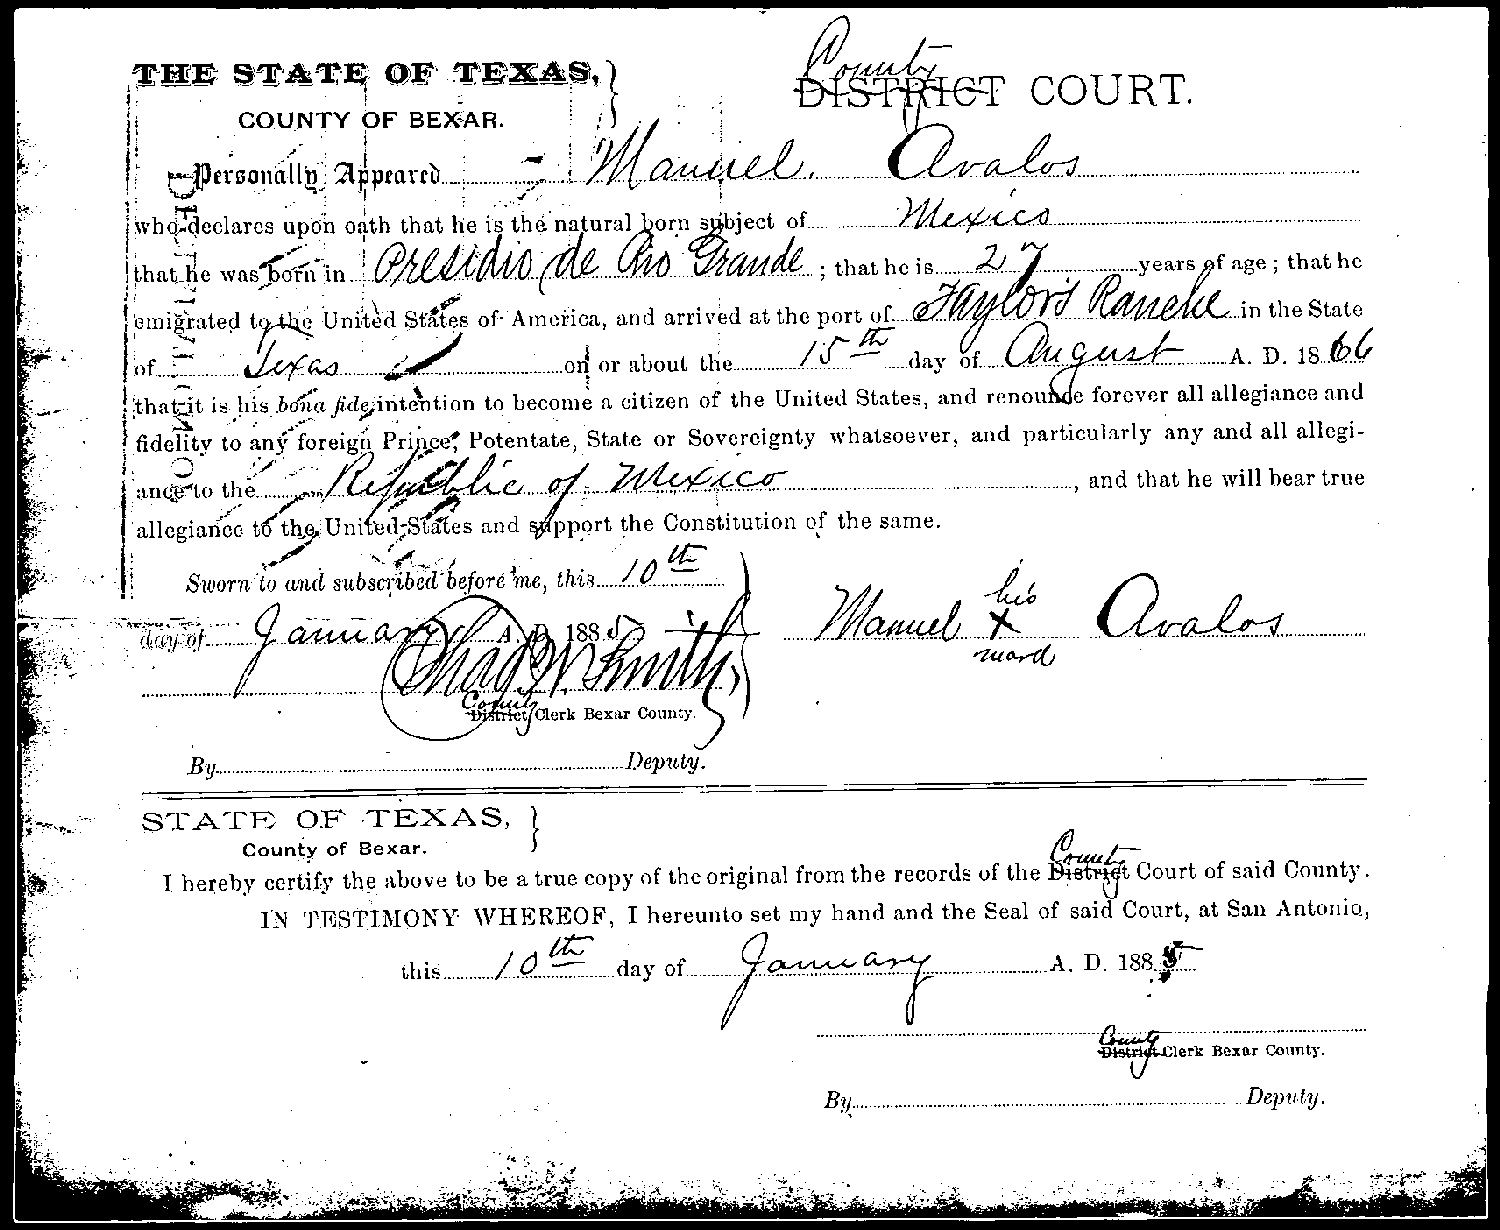 THE STATE OF TEXAS,
COUNTY OF BEXAR.
County
DISTRICT COURT.
Personally Appeared Manuel. Avalos
who declares upon oath that he is the natural born subject of Mexico
that he was born in Presidio de Rio Grande ; that he is 27 years of age ; that he
emigrated to the United States of America, and arrived at the port of Taylor's Ranche in the State
of Texas on or about the 15th day of August A. D. 1866
that it is his bona fide intention to become a citizen of the United States, and renounce forever all allegiance and
fidelity to any foreign Prince, Potentate, State or Sovereignty whatsoever, and particularly any and all allegi-
ance to the Republic of Mexico, and that he will bear true
allegiance to the United States and support the Constitution of the same.
Sworn to and subscribed before me, this 10th
day of January A. D. 1885
Manuel his x mark Avalos
Thad W. Smith
County
District Clerk Bexar County.
By Deputy.
STATE OF TEXAS,
County of Bexar.
County
I hereby certify the above to be a true copy of the original from the records of the District Court of said County.
IN TESTIMONY WHEREOF, I hereunto set my hand and the Seal of said Court, at San Antonio,
this 10th day of January A. D. 1885
County
District Clerk Bexar County.
By Deputy.